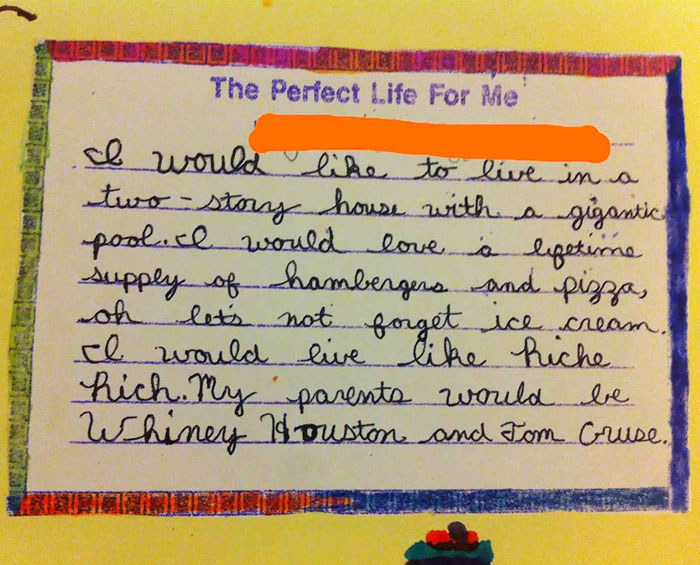 The Perfect Life For Me
I would like to live in a
two-story house with a gigantic
pool. I would love a lifetime
supply of hambergers and pizza,
oh let's not forget ice cream.
I would live like Riche
Rich. My parents would be
Whiney Houston and Tom Cruse.